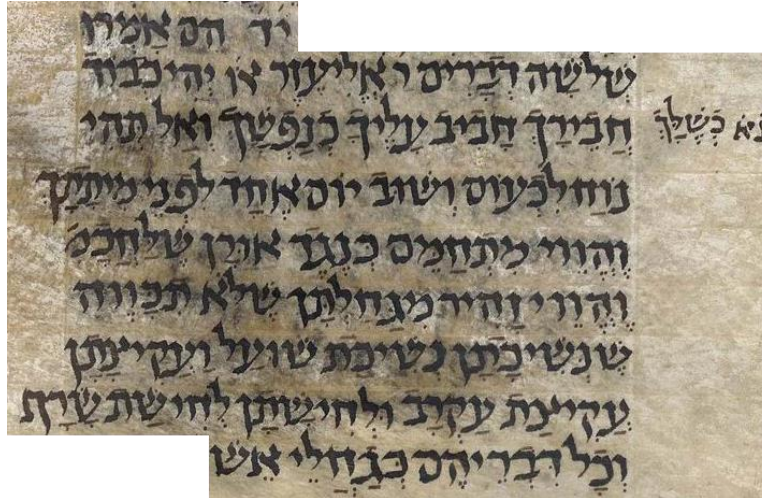 יד הם אמרו
שלשה דברים ר אליעזר או יהי כבוד
חֲבֵירָךְ חָבִיב עָלֶיךָ כְּנַפְשָׁךְ וְאַל תְּהִי
נא כְּשֶׁלָּךְ
נוח לכעוס ושוב יום אחד לפני מיתתך
והווי מתחמם כנגד אורן שלחכמ
והווי זהיר מגחלתן שלא תכווה
שנשיכתן נשיכת שועל ועקיצתן
עקיצת עקרב ולחישתן לחישת שרף
וכל דבריהם כגחלי אש